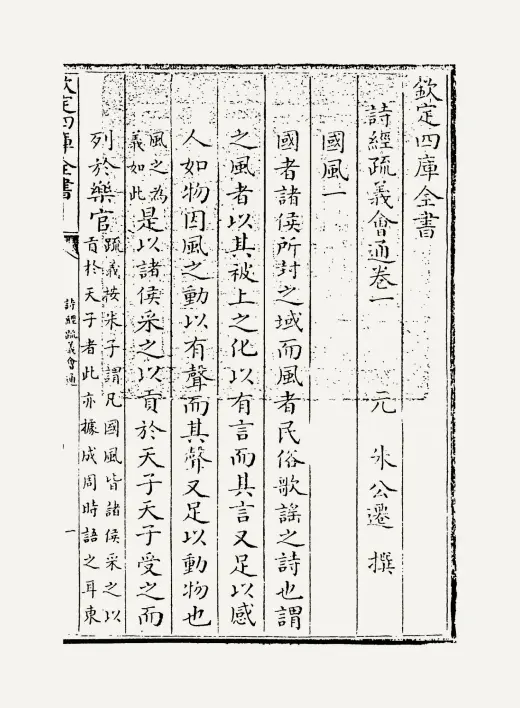 欽定四庫全書
詩經疏義會通卷一
元 朱公遷 撰
國風一
國者諸侯所封之域而風者民俗歌謠之詩也謂
之風者以其被上之化以有言而其言又足以感
人如物因風之動以有聲而其聲又足以動物也
風之為
義如此
是以諸侯采之以貢於天子天子受之而
列於樂官
疏義按朱子謂凡國風皆諸侯采之以
貢於天子者此亦據成周時語之耳東
欽定四庫全書
詩經疏義會通
一